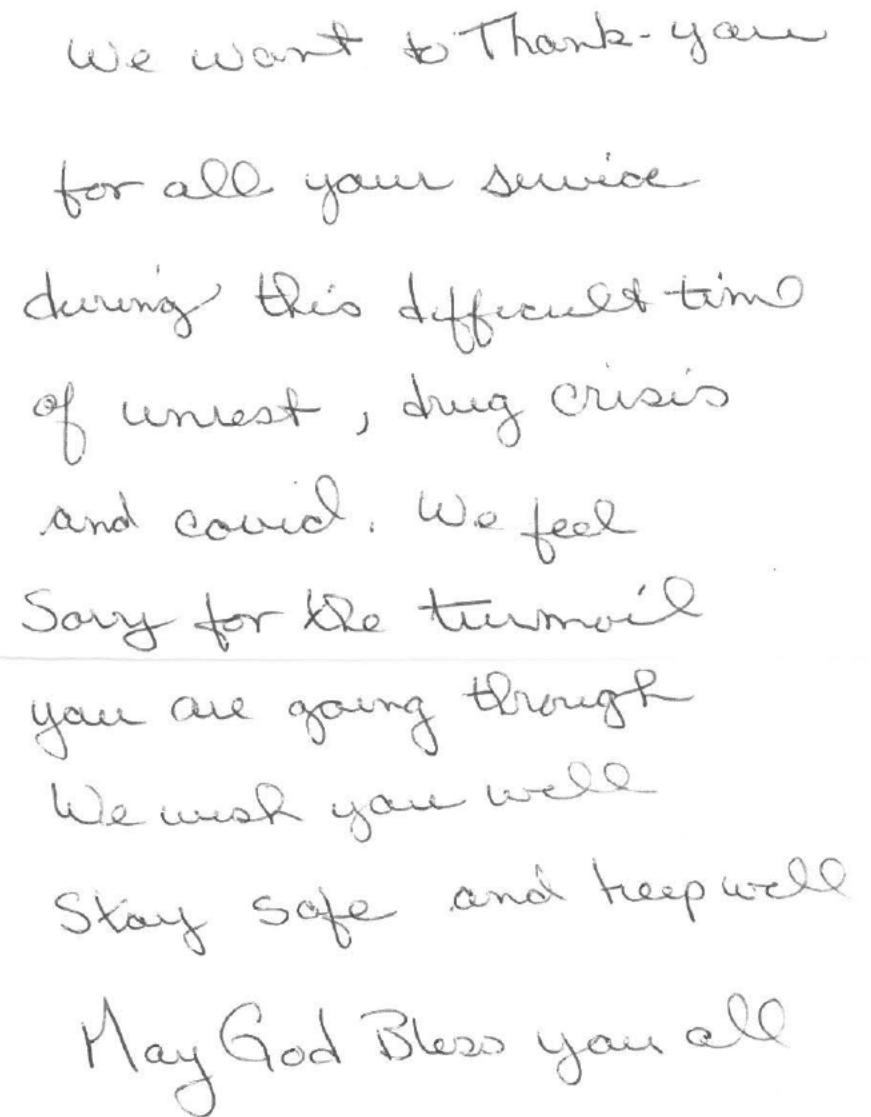 We want to Thank-you
for all your service
during this difficult time
of unrest, drug crisis
and covid. We feel
Sorry for the turmoil
you are going through
We wish you well
Stay safe and keep well
May God Bless you all